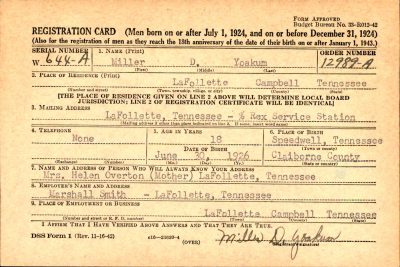 FORM APPROVED
Budget Bureau No. 33-R013-42
REGISTRATION CARD (Men born on or after July 1, 1924, and on or before December 31, 1924)
(Also for the registration of men as they reach the 18th anniversary of the date of their birth on or after January 1, 1943.)
SERIAL NUMBER 1. NAME (Print) ORDER NUMBER
W. 644-A Miller D. Yoakum 12989-A
(First) (Middle) (Last)
2. PLACE OF RESIDENCE (Print)
LaFollette Campbell Tennessee
(Number and street) (Town, township, village, or city) (County) (State)
[THE PLACE OF RESIDENCE GIVEN ON LINE 2 ABOVE WILL DETERMINE LOCAL BOARD
JURISDICTION; LINE 2 OF REGISTRATION CERTIFICATE WILL BE IDENTICAL]
3. MAILING ADDRESS
LaFollette, Tennessee - % Rex Service Station
(Mailing address if other than place indicated on line 2. If same, insert word same)
4. TELEPHONE 5. AGE IN YEARS 6. PLACE OF BIRTH
None 18 Speedwell, Tennessee
DATE OF BIRTH (Town or county)
June 30, 1926 Claiborne County
(Exchange) (Number) (Mo.) (Day) (Yr.) (State or country)
7. NAME AND ADDRESS OF PERSON WHO WILL ALWAYS KNOW YOUR ADDRESS
Mrs. Helen Overton (Mother) LaFollette, Tennessee
8. EMPLOYER'S NAME AND ADDRESS
Marshall Smith - LaFollette, Tennessee
9. PLACE OF EMPLOYMENT OR BUSINESS
LaFollette, Campbell Tennessee
(Number and street or R. F. D. number) (Town) (County) (State)
I AFFIRM THAT I HAVE VERIFIED ABOVE ANSWERS AND THAT THEY ARE TRUE.
DSS Form 1 (Rev. 11-16-42) (OVER) Miller D. Yoakum